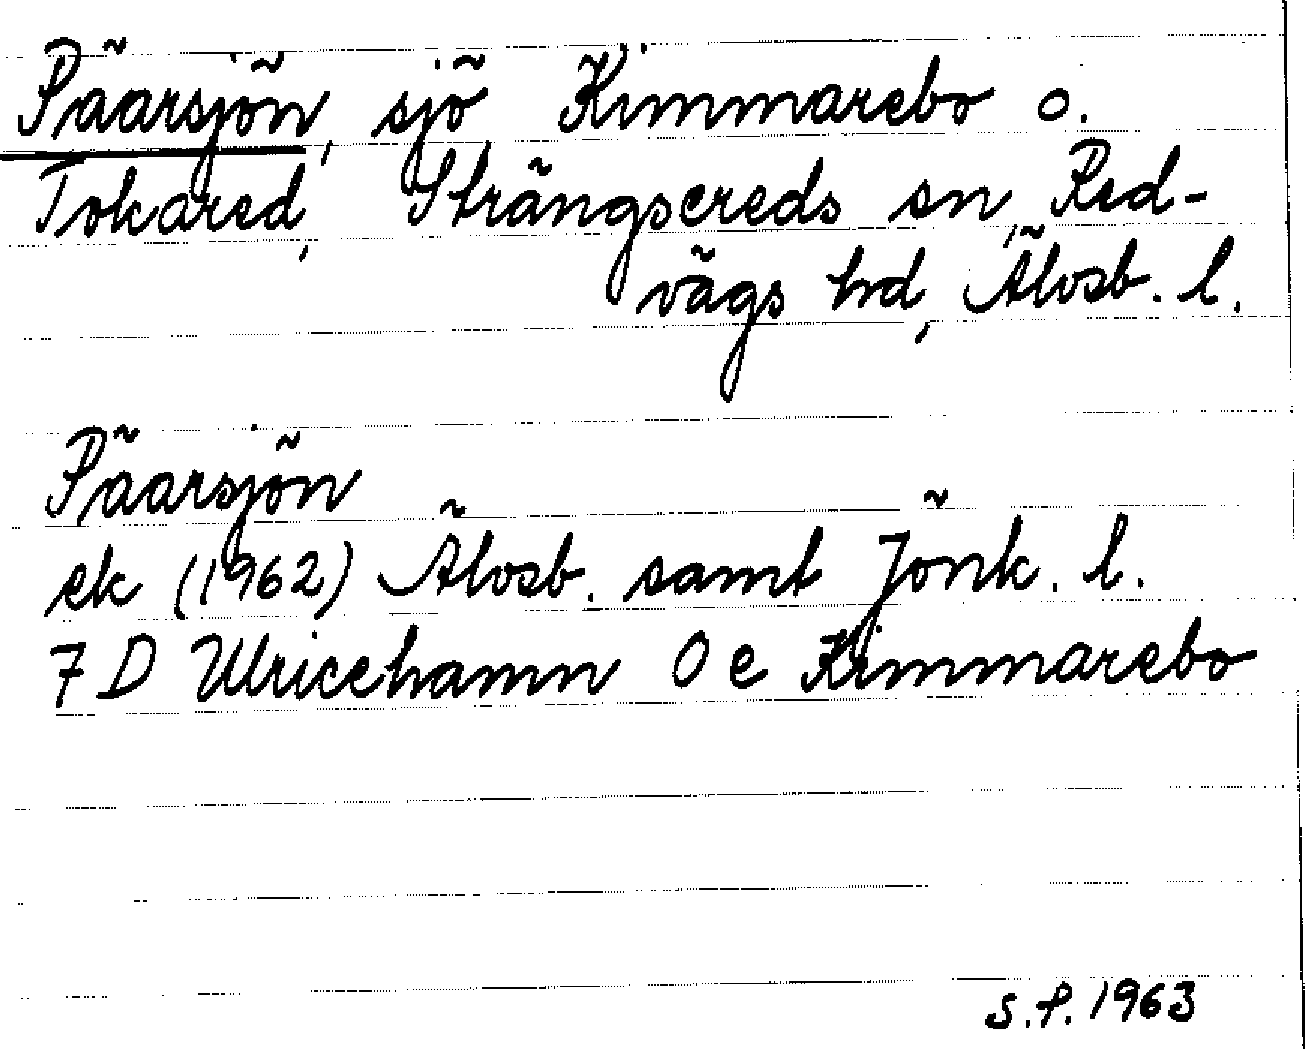 Päarsjön, sjö Kimmarebo o.
Tokared, Strängsereds sn, Red-
vägs hd, Älvsb. l.
Päarsjön
ek (1962) Älvsb. samt Jönk. l.
7 D Ulricehamn 0 e Kimmarebo
S.P. 1963